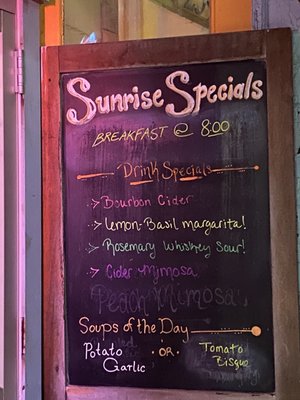 Sunrise Specials
BREAKFAST @ 8:00
Drink Specials
> Bourbon Cider
> Lemon-Basil margarita!
> Rosemary Whiskey Sour!
> Cider Mimosa
Peach Mimosa
Soups of the Day
Potato Garlic
- OR -
Tomato Bisque